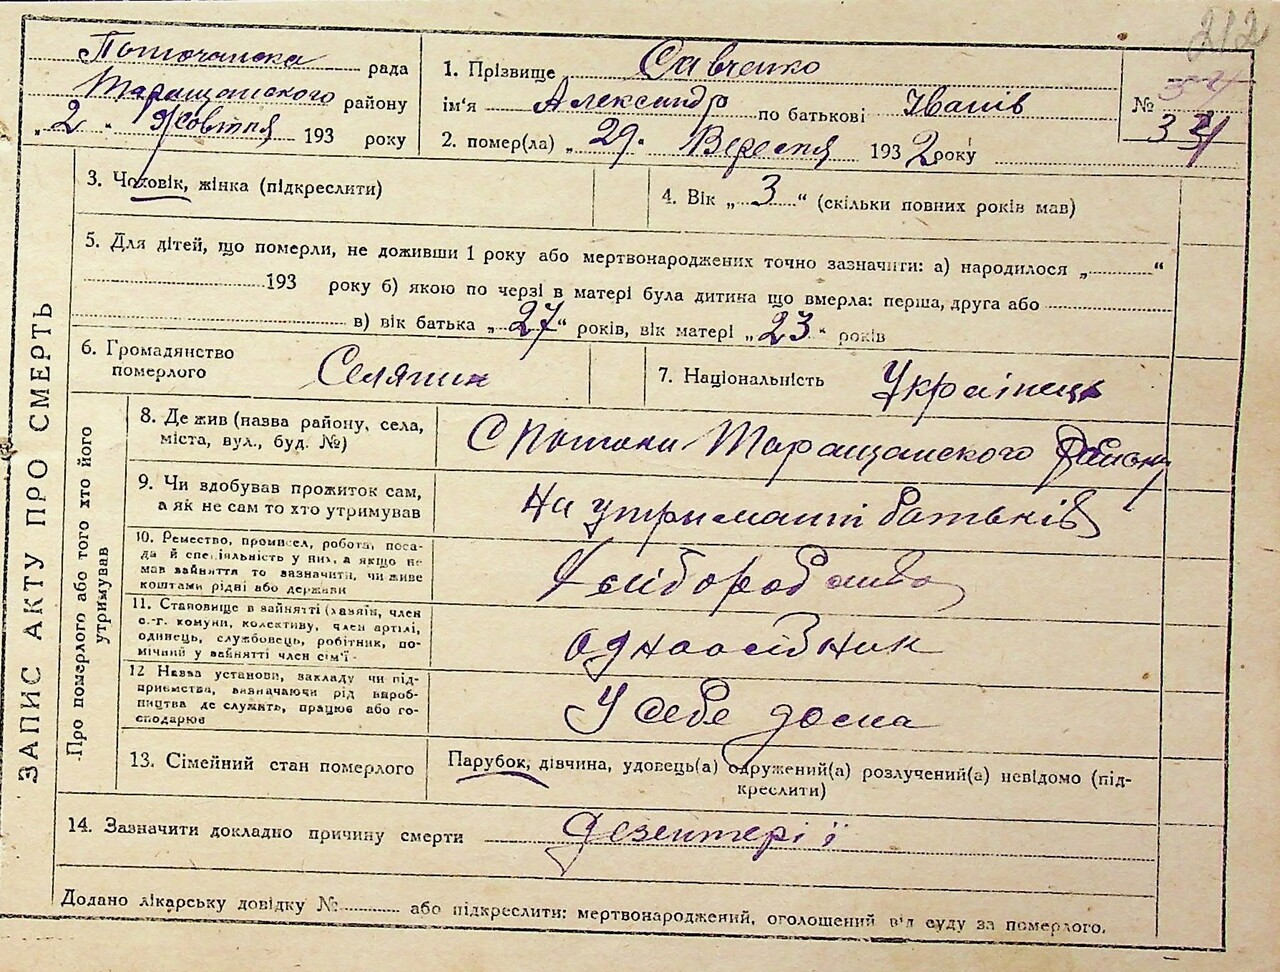 212
Поточанска рада
Таращанского району
„ 2 “ Жовтня 193 року
1. Прізвище Савченко
ім'я Александр по батькові Іванів
2. помер(ла) „ 29 “ Вересня 1932 року
№ 34
34
ЗАПИС АКТУ ПРО СМЕРТЬ
3. Чоловік, жінка (підкреслити)
4. Вік „ 3 “ (скільки повних років мав)
5. Для дітей, що померли, не доживши 1 року або мертвонароджених точно зазначити: а) народилося „ “
193 року б) якою по черзі в матері була дитина що вмерла: перша, друга або
в) вік батька „ 27 “ років, вік матері „ 23 “ років
6. Громадянство
померлого
Селянин
7. Національність Українець
Про померлого або того хто його
утримував
8. Де жив (назва району, села,
міста, вул., буд. №)
С Потоки Таращанского району
9. Чи вдобував прожиток сам,
а як не сам то хто утримував
На утриманні батьків
10. Ремество, промисел, робота, поса-
да й спеціяльність у них, а якщо не
мав зайняття то зазначити, чи живе
коштами рідні або держави
Хліборобство
11. Становище в зайнятті (хазяїн, член
с.-г. комуни, колективу, член артілі,
одинець, службовець, робітник, по-
мічний у зайнятті член сім'ї
одноосібник
12 Назва установи, закладу чи під-
приємства, визначаючи рід вироб-
ництва де служить, працює або го-
сподарює
У себе дома
13. Сімейний стан померлого
Парубок, дівчина, удовець(а) одружений(а) розлучений(а) невідомо (під-
креслити)
14. Зазначити докладно причину смерти Дезентерії
Додано лікарську довідку № або підкреслити: мертвонароджений, оголошений від суду за померлого.